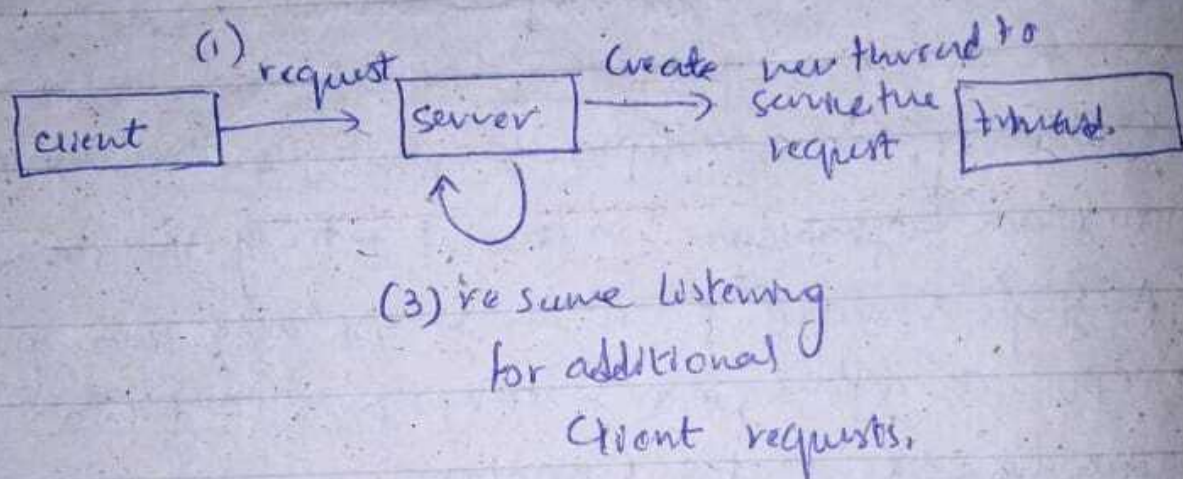 (1)
request
client
server
Create new thread to
service the
request
thread.
(3) resume listening
for additional
Client requests.